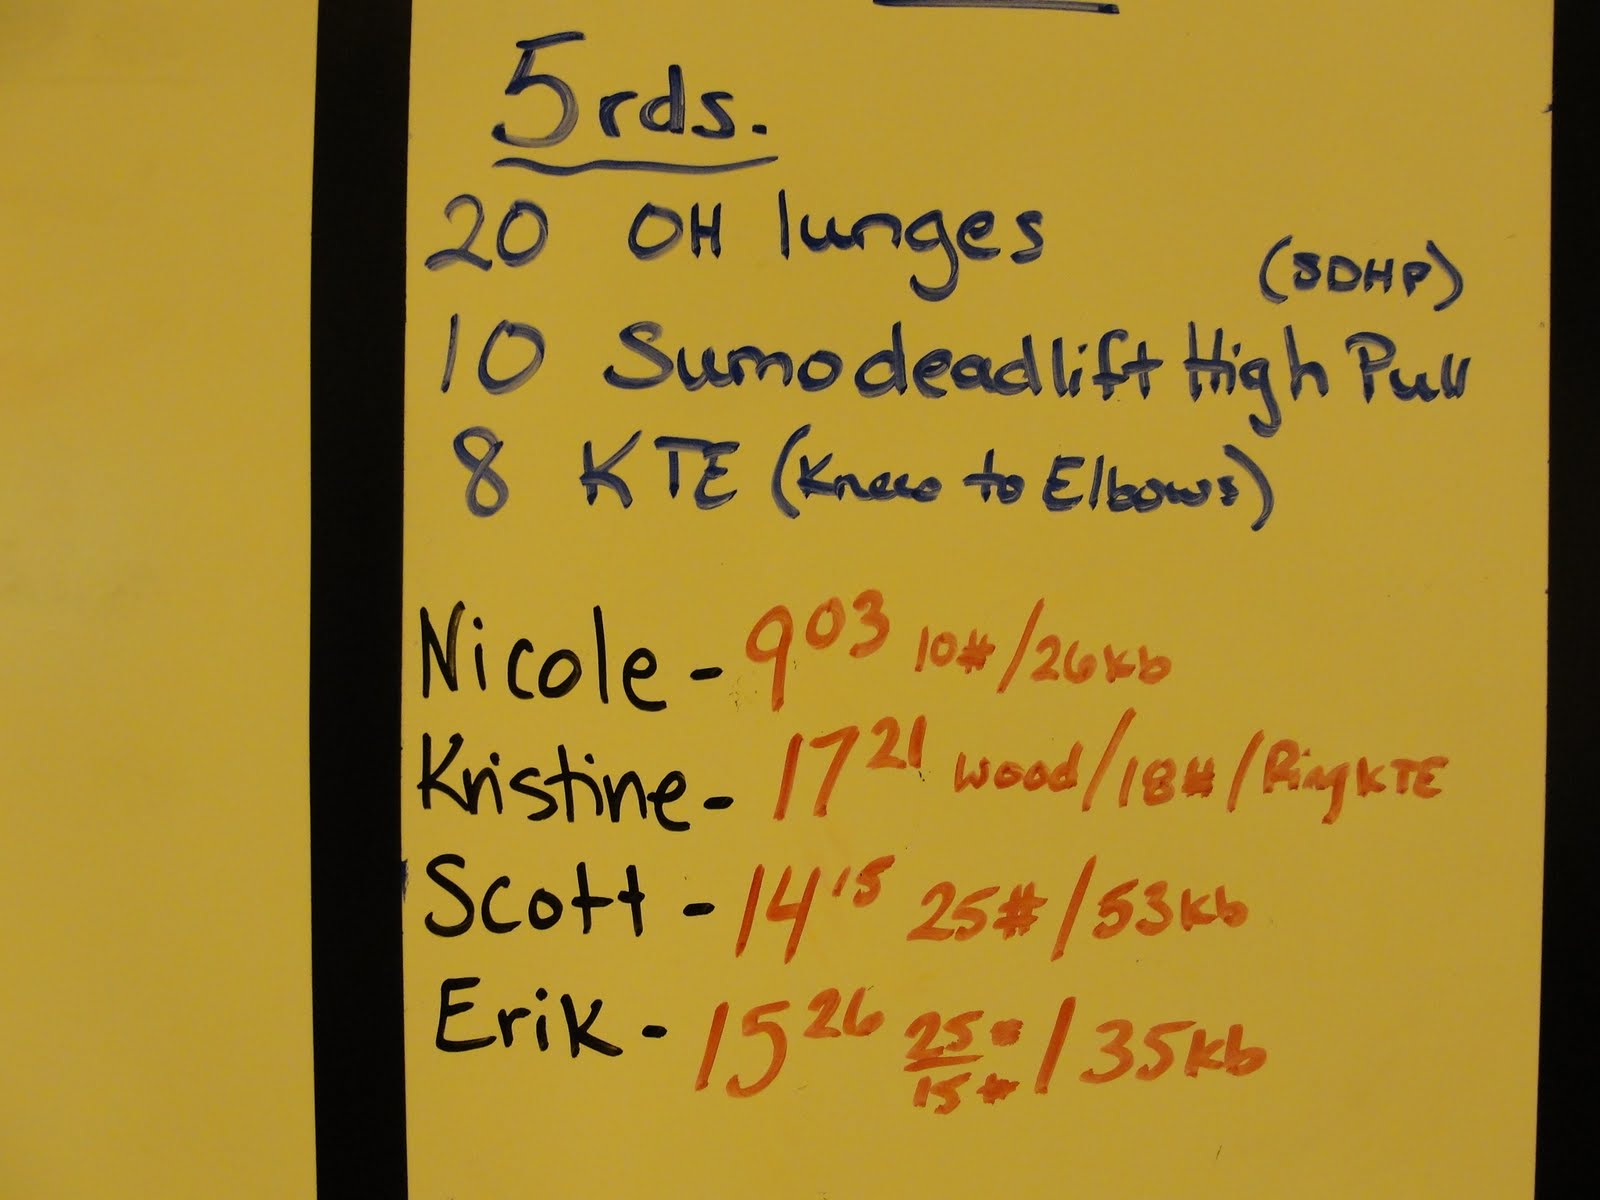 5 rds.
20 OH lunges
(SDHP)
10 Sumodeadlift High Pull
8 KTE (Knees to Elbows)
Nicole - 9 03 10# / 26kb
Kristine - 17 21 wood / 18# / Ring KTE
Scott - 14 15 25# / 53kb
Erik - 15 26 25# / 15# / 35kb